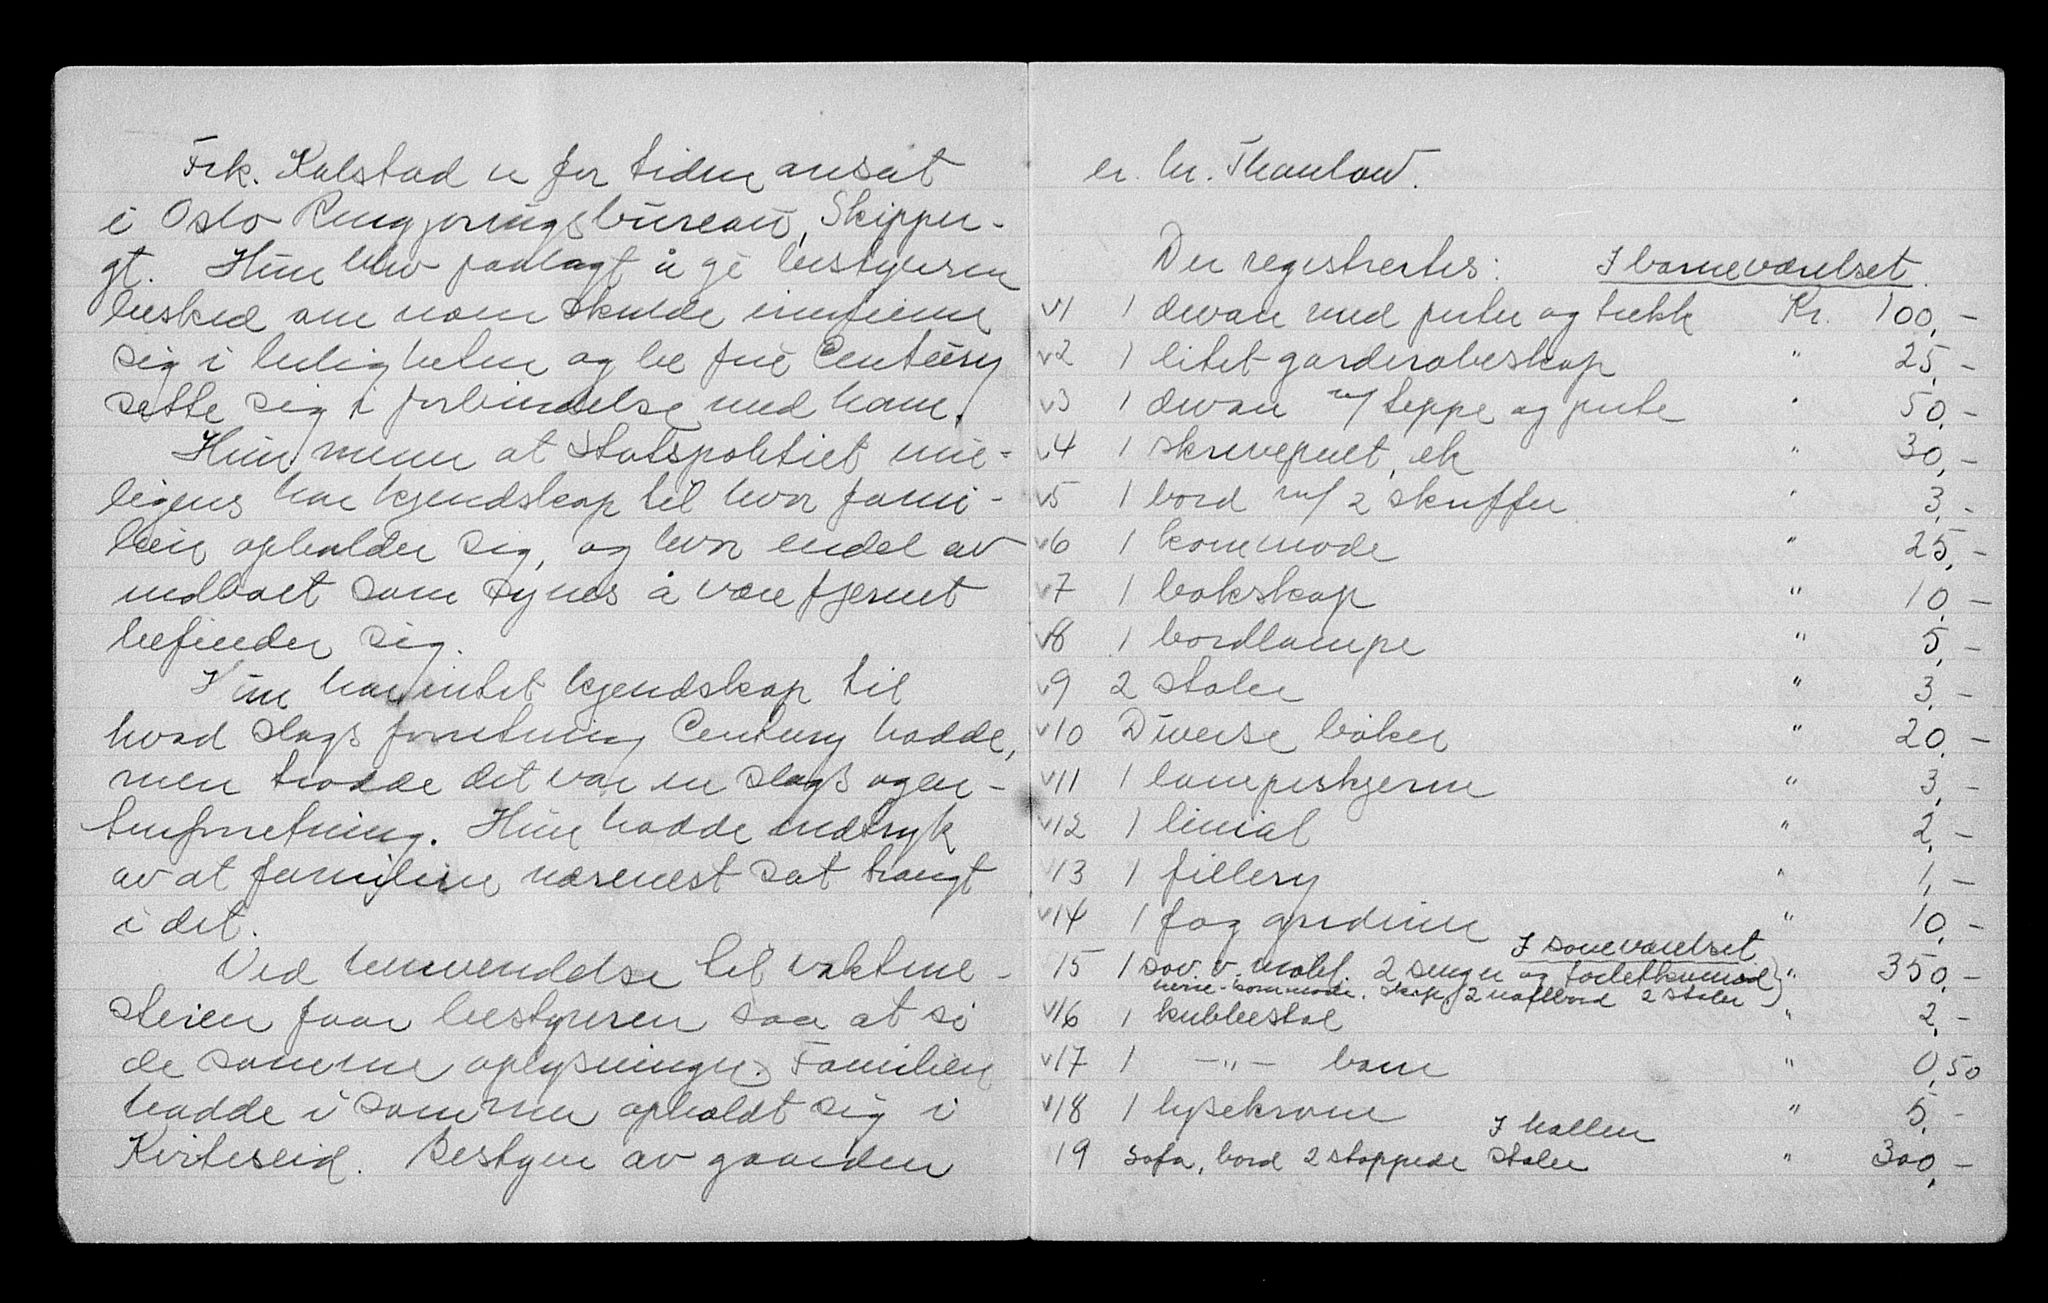 Frk. Kalstad er for tiden ansat
i Oslo Rengjøringsbureau, Skipper-
gt. Hun blev paalagt å gi bestyreren
besked om naar skulde innfinne
sig i leiligheten og be frue Century
sette sig i forbindelse med ham.
Hun mener at Statspolitiet mu-
ligens har kjendskap til hvor fami-
lien opholder sig, og hvor endel av
indboet som synes å være fjernet
befinder sig.
Hun har intet kjendskap til
hvad slags forretning Century hadde,
men trodde det var en slags agen-
turforretning. Hun hadde indtryk
av at familien nærmest sat trangt
i det.
Ved henvendelse til vaktme-
steren faar bestyreren saa at si
de samme oplysninger. Familien
hadde i sommer opholdt sig i
Kviteseid. Bestyrer av gaarden
er hr. Thaulow.
Der registrertes: I barneværelset.
v1 1 divan med puter og trekk Kr. 100,-
v2 1 litet garderobeskap " 25,-
v3 1 divan m/ teppe og pute " 50,-
v4 1 skrivepult, ek " 30,-
v5 1 bord m/ 2 skuffer " 3,-
v6 1 kommode " 25,-
v7 1 bokskap " 10,-
v8 1 bordlampe " 5,-
v9 2 stoler " 3,-
v10 Diverse bøker " 20,-
v11 1 lampeskjerm " 3,-
v12 1 linial " 2,-
v13 1 fillery " 1,-
v14 1 fag gardiner " 10,-
I soveværelset
15 1 sov. v. møbl. 2 senger og toiletkommode " 350,-
herre-kommode, skap, 2 nattbord 2 stoler
v16 1 kubbestol " 2,-
v17 1 -"- barn " 0,50
v18 1 lysekrone " 5,-
I hallen
19 Sofa, bord 2 stoppede stoler " 300,-